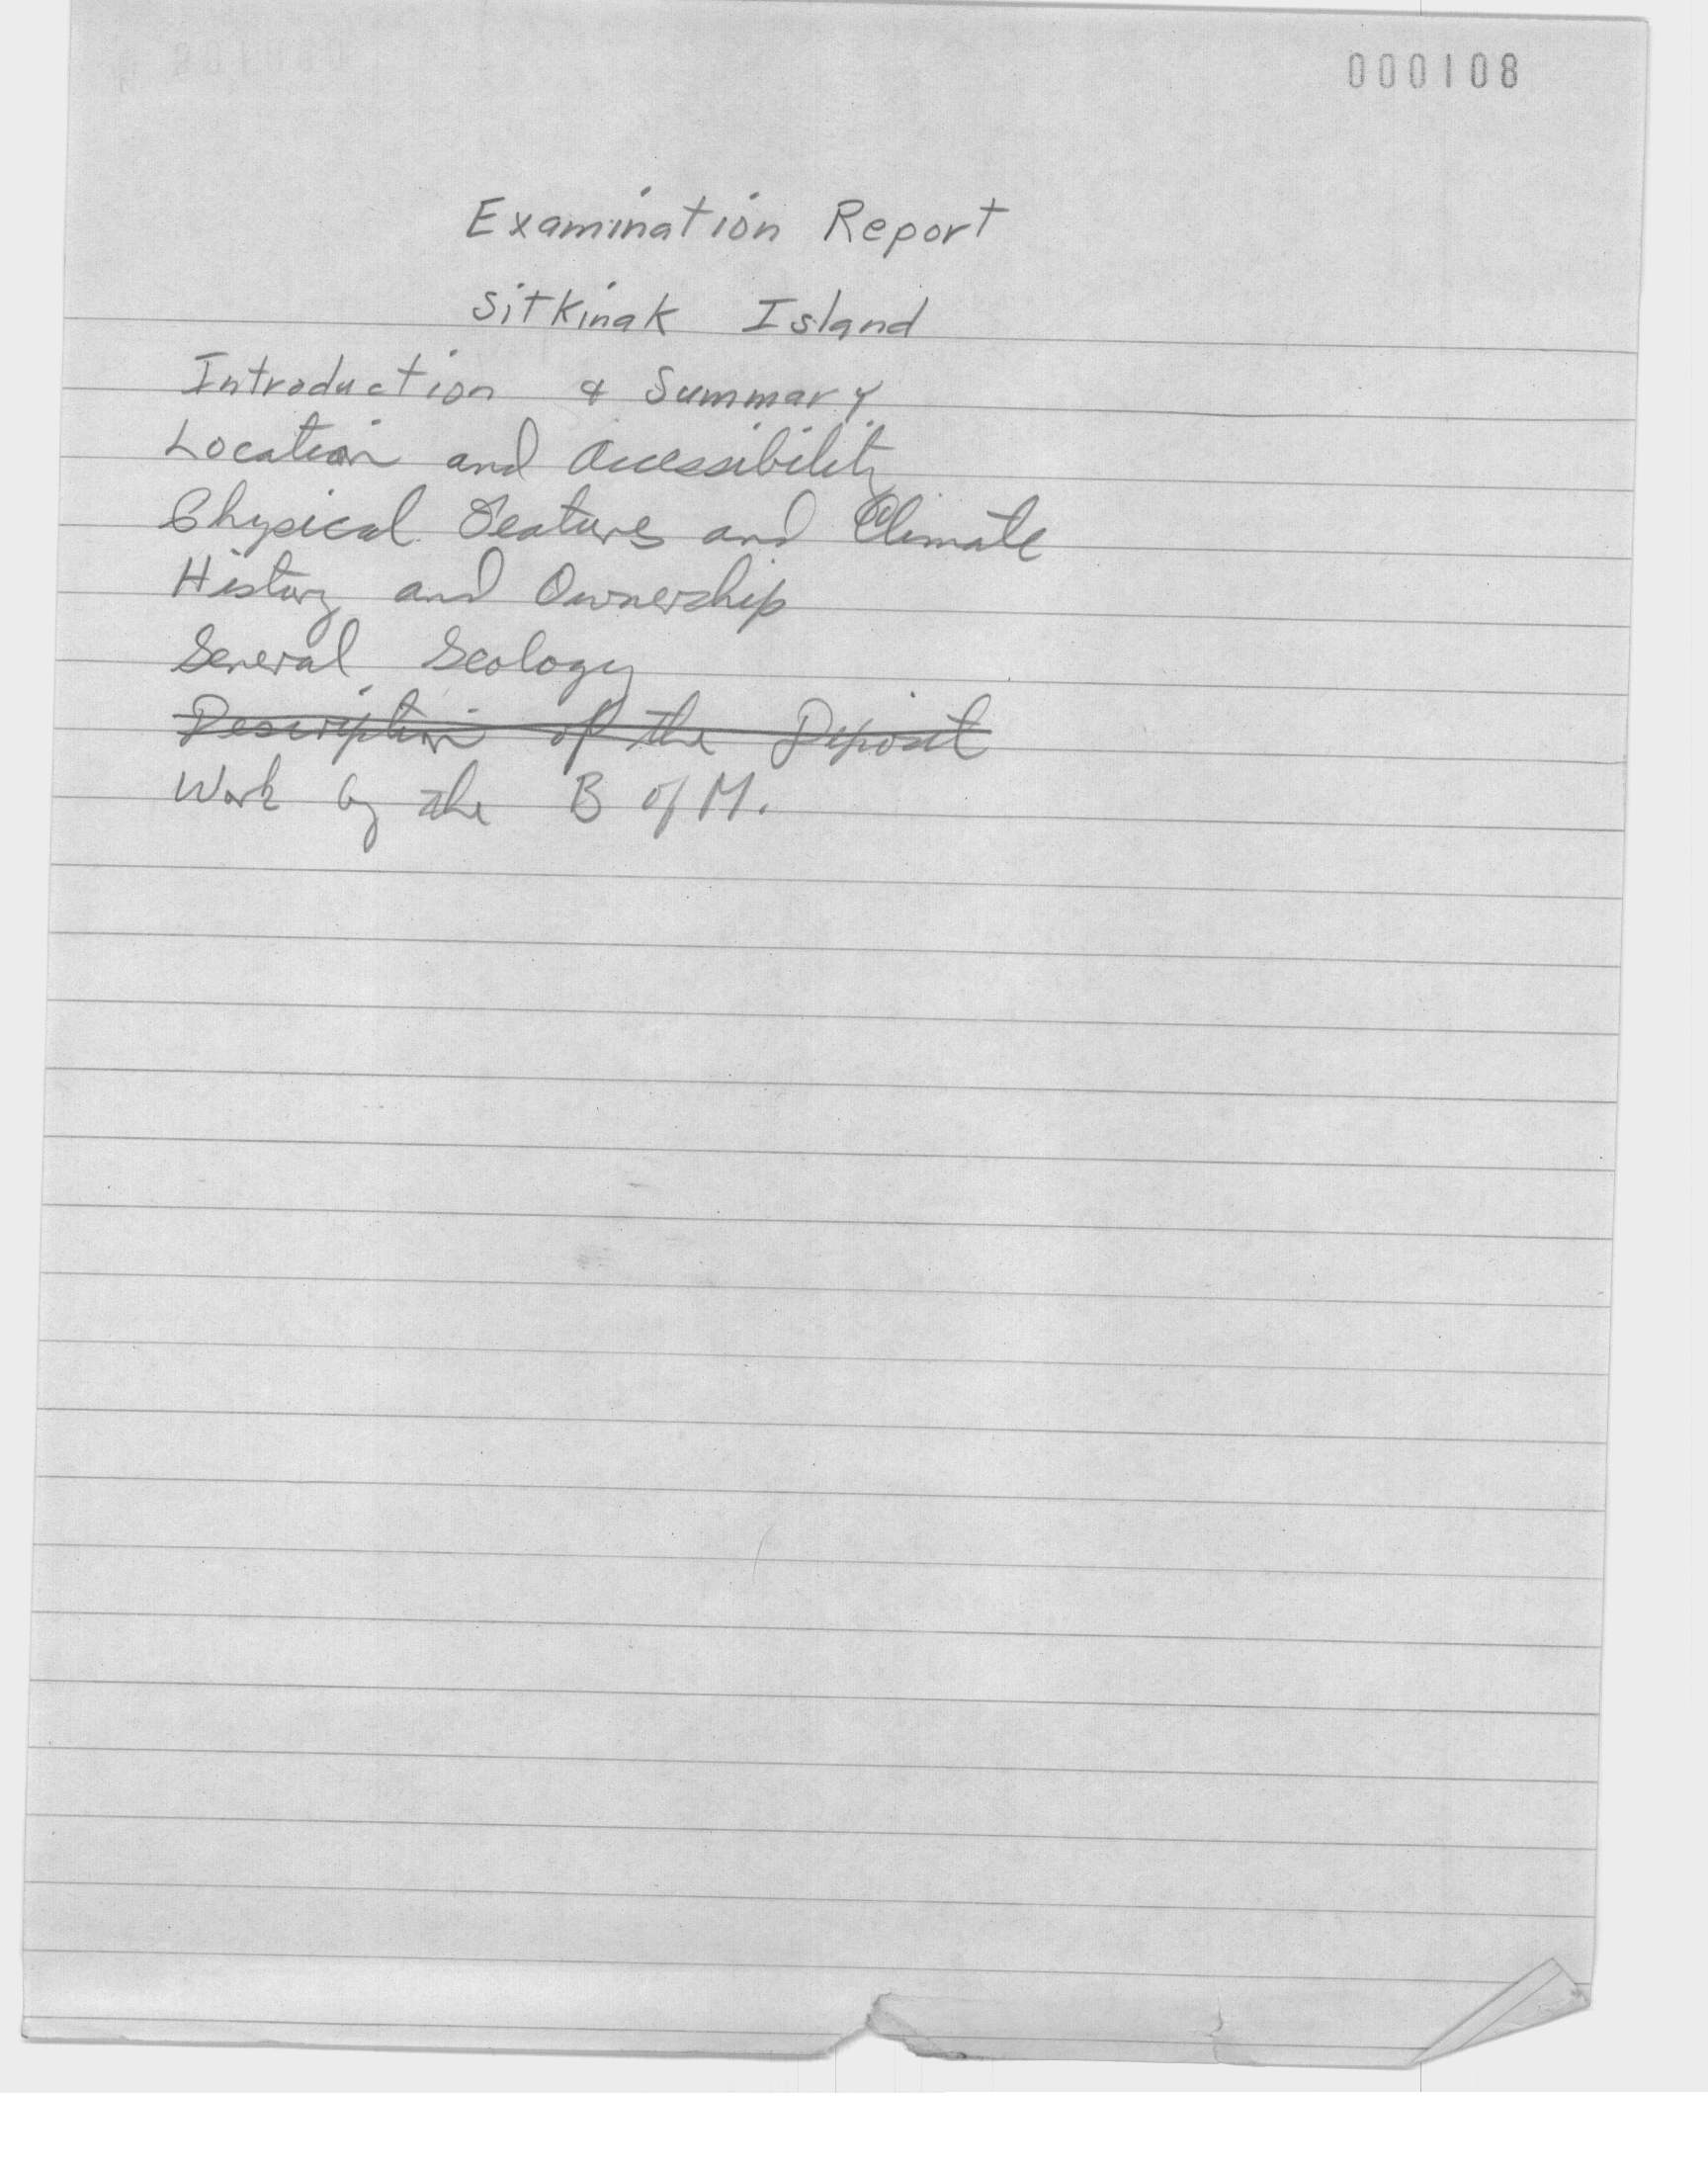 000108
Examination Report
Sitkinak Island
Introduction & Summary
Location and Accessibility
Physical Features and Climate
History and Ownership
General Geology
Description of the Deposit
Work by the B of M.